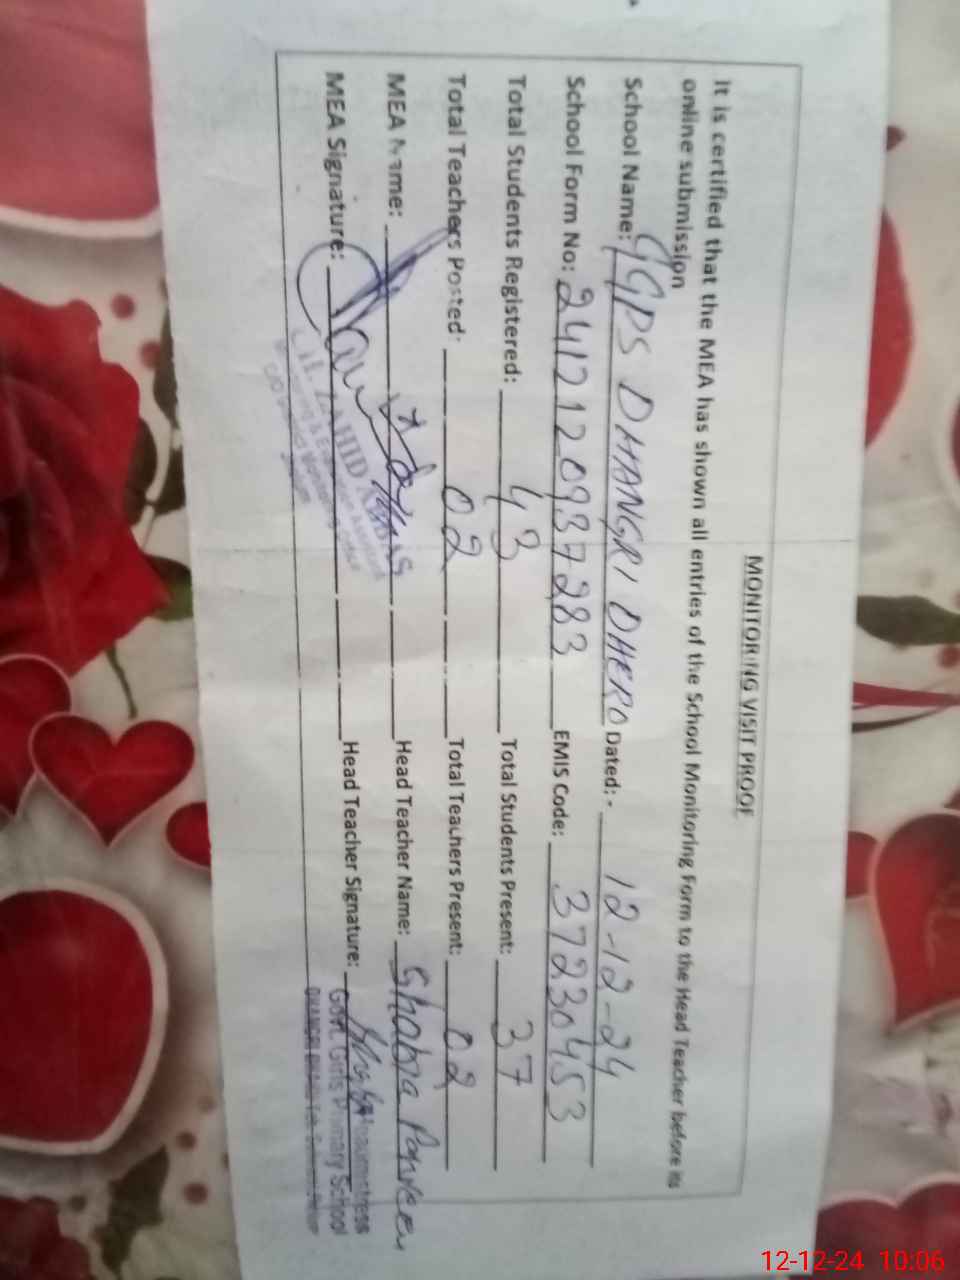 MONITORING VISIT PROOF
It is certified that the MEA has shown all entries of the School Monitoring Form to the Head Teacher before its
online submission
School Name: GGPS DHANGRI DHERO Dated:- 12-12-24
School Form No: 2412120937283 EMIS Code: 37230453
Total Students Registered: 43 Total Students Present: 37
Total Teachers Posted: 02 Total Teachers Present: 02
MEA Name: Head Teacher Name: Shabna Parveen
MEA Signature: Head Teacher Signature:
CH. ZAHID
Headmistress
Govt. Girls Primary School
12-12-24 10:06